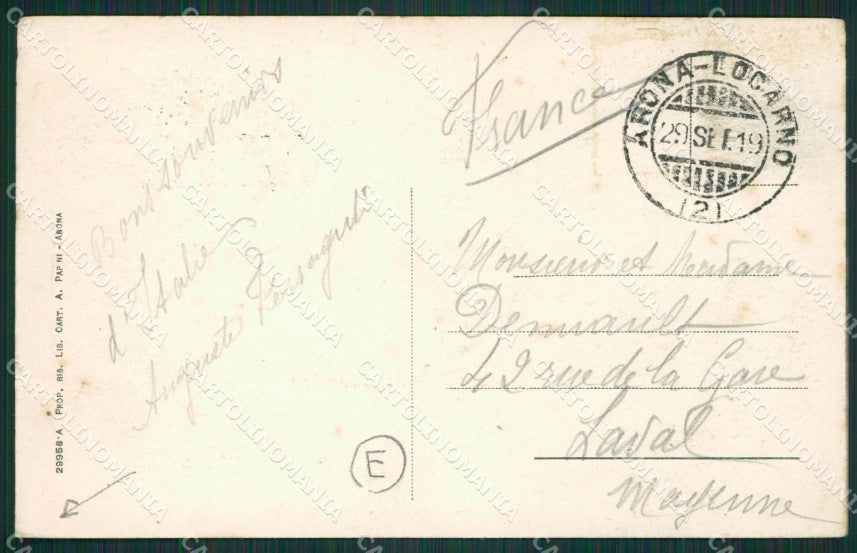 France
ARONA-LOCARNO
29 SET. 19
(2)
Bons souvenirs
d'Italie
Auguste
Monsieur et Madame
42 rue de la Gare
Laval
Mayenne
E
29956-A (PROP. RIS. LIB. CART. A. PAPINI - ARONA
CARTOLINOMANIA